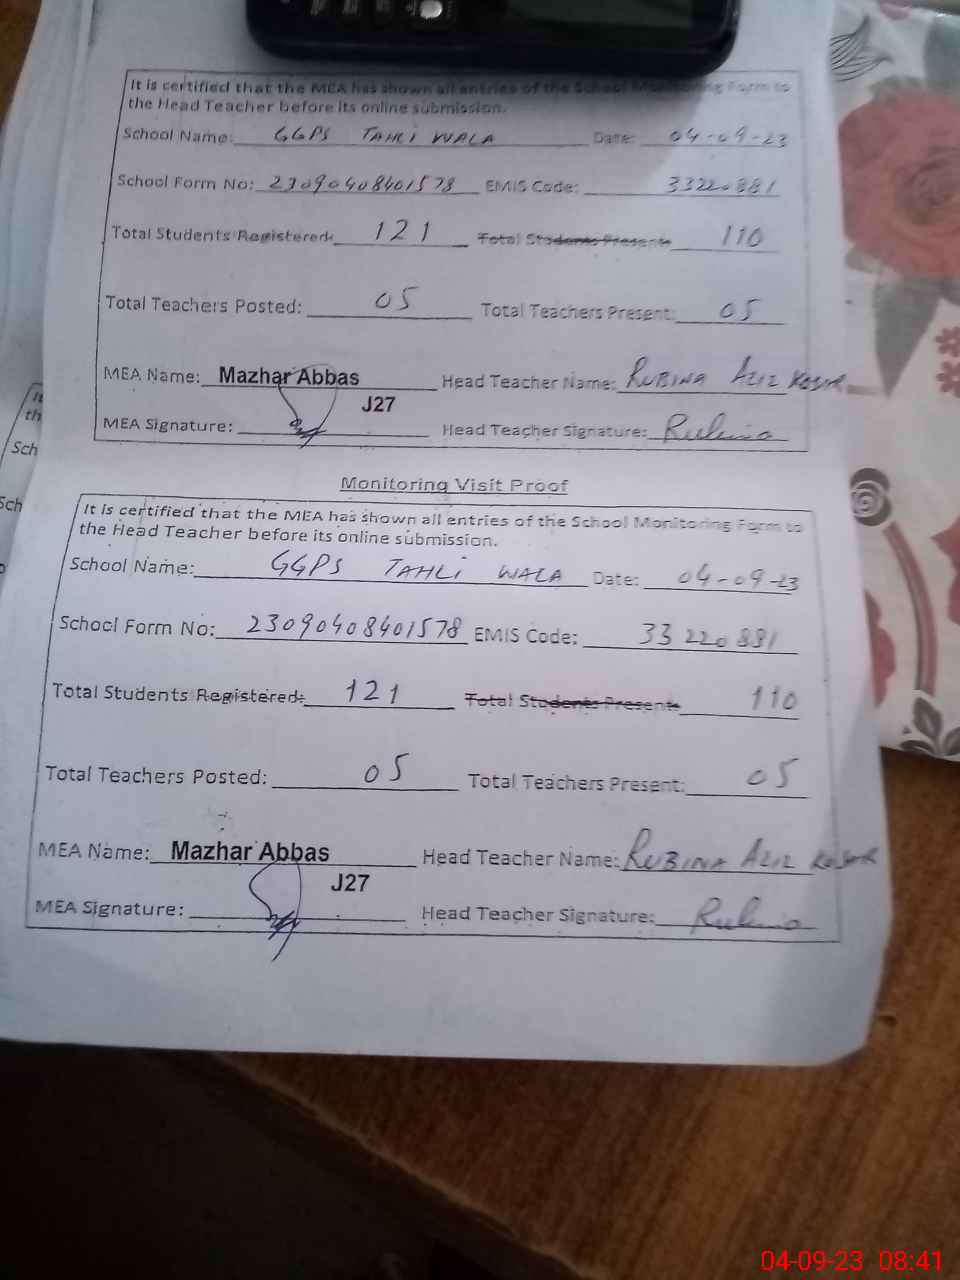 It is certified that the MEA has shown all entries of the School Monitoring Form to
the Head Teacher before its online submission.
School Name: GGPS TAHLI WALA Date: 04-09-23
School Form No: 23090408401578 EMIS Code: 33220881
Total Students Registered: 121 Total Students Present: 110
Total Teachers Posted: 05 Total Teachers Present: 05
MEA Name: Mazhar Abbas Head Teacher Name: RUBINA AZIZ KOSAR
J27
MEA Signature: Head Teacher Signature: Rubina
Monitoring Visit Proof
It is certified that the MEA has shown all entries of the School Monitoring Form to
the Head Teacher before its online submission.
School Name: GGPS TAHLI WALA Date: 04-09-23
School Form No: 23090408401578 EMIS Code: 33220881
Total Students Registered: 121 Total Students Present: 110
Total Teachers Posted: 05 Total Teachers Present: 05
MEA Name: Mazhar Abbas Head Teacher Name: RUBINA AZIZ KOSAR
J27
MEA Signature: Head Teacher Signature: Rubina
It
th
Sch
Sch
04-09-23 08:41